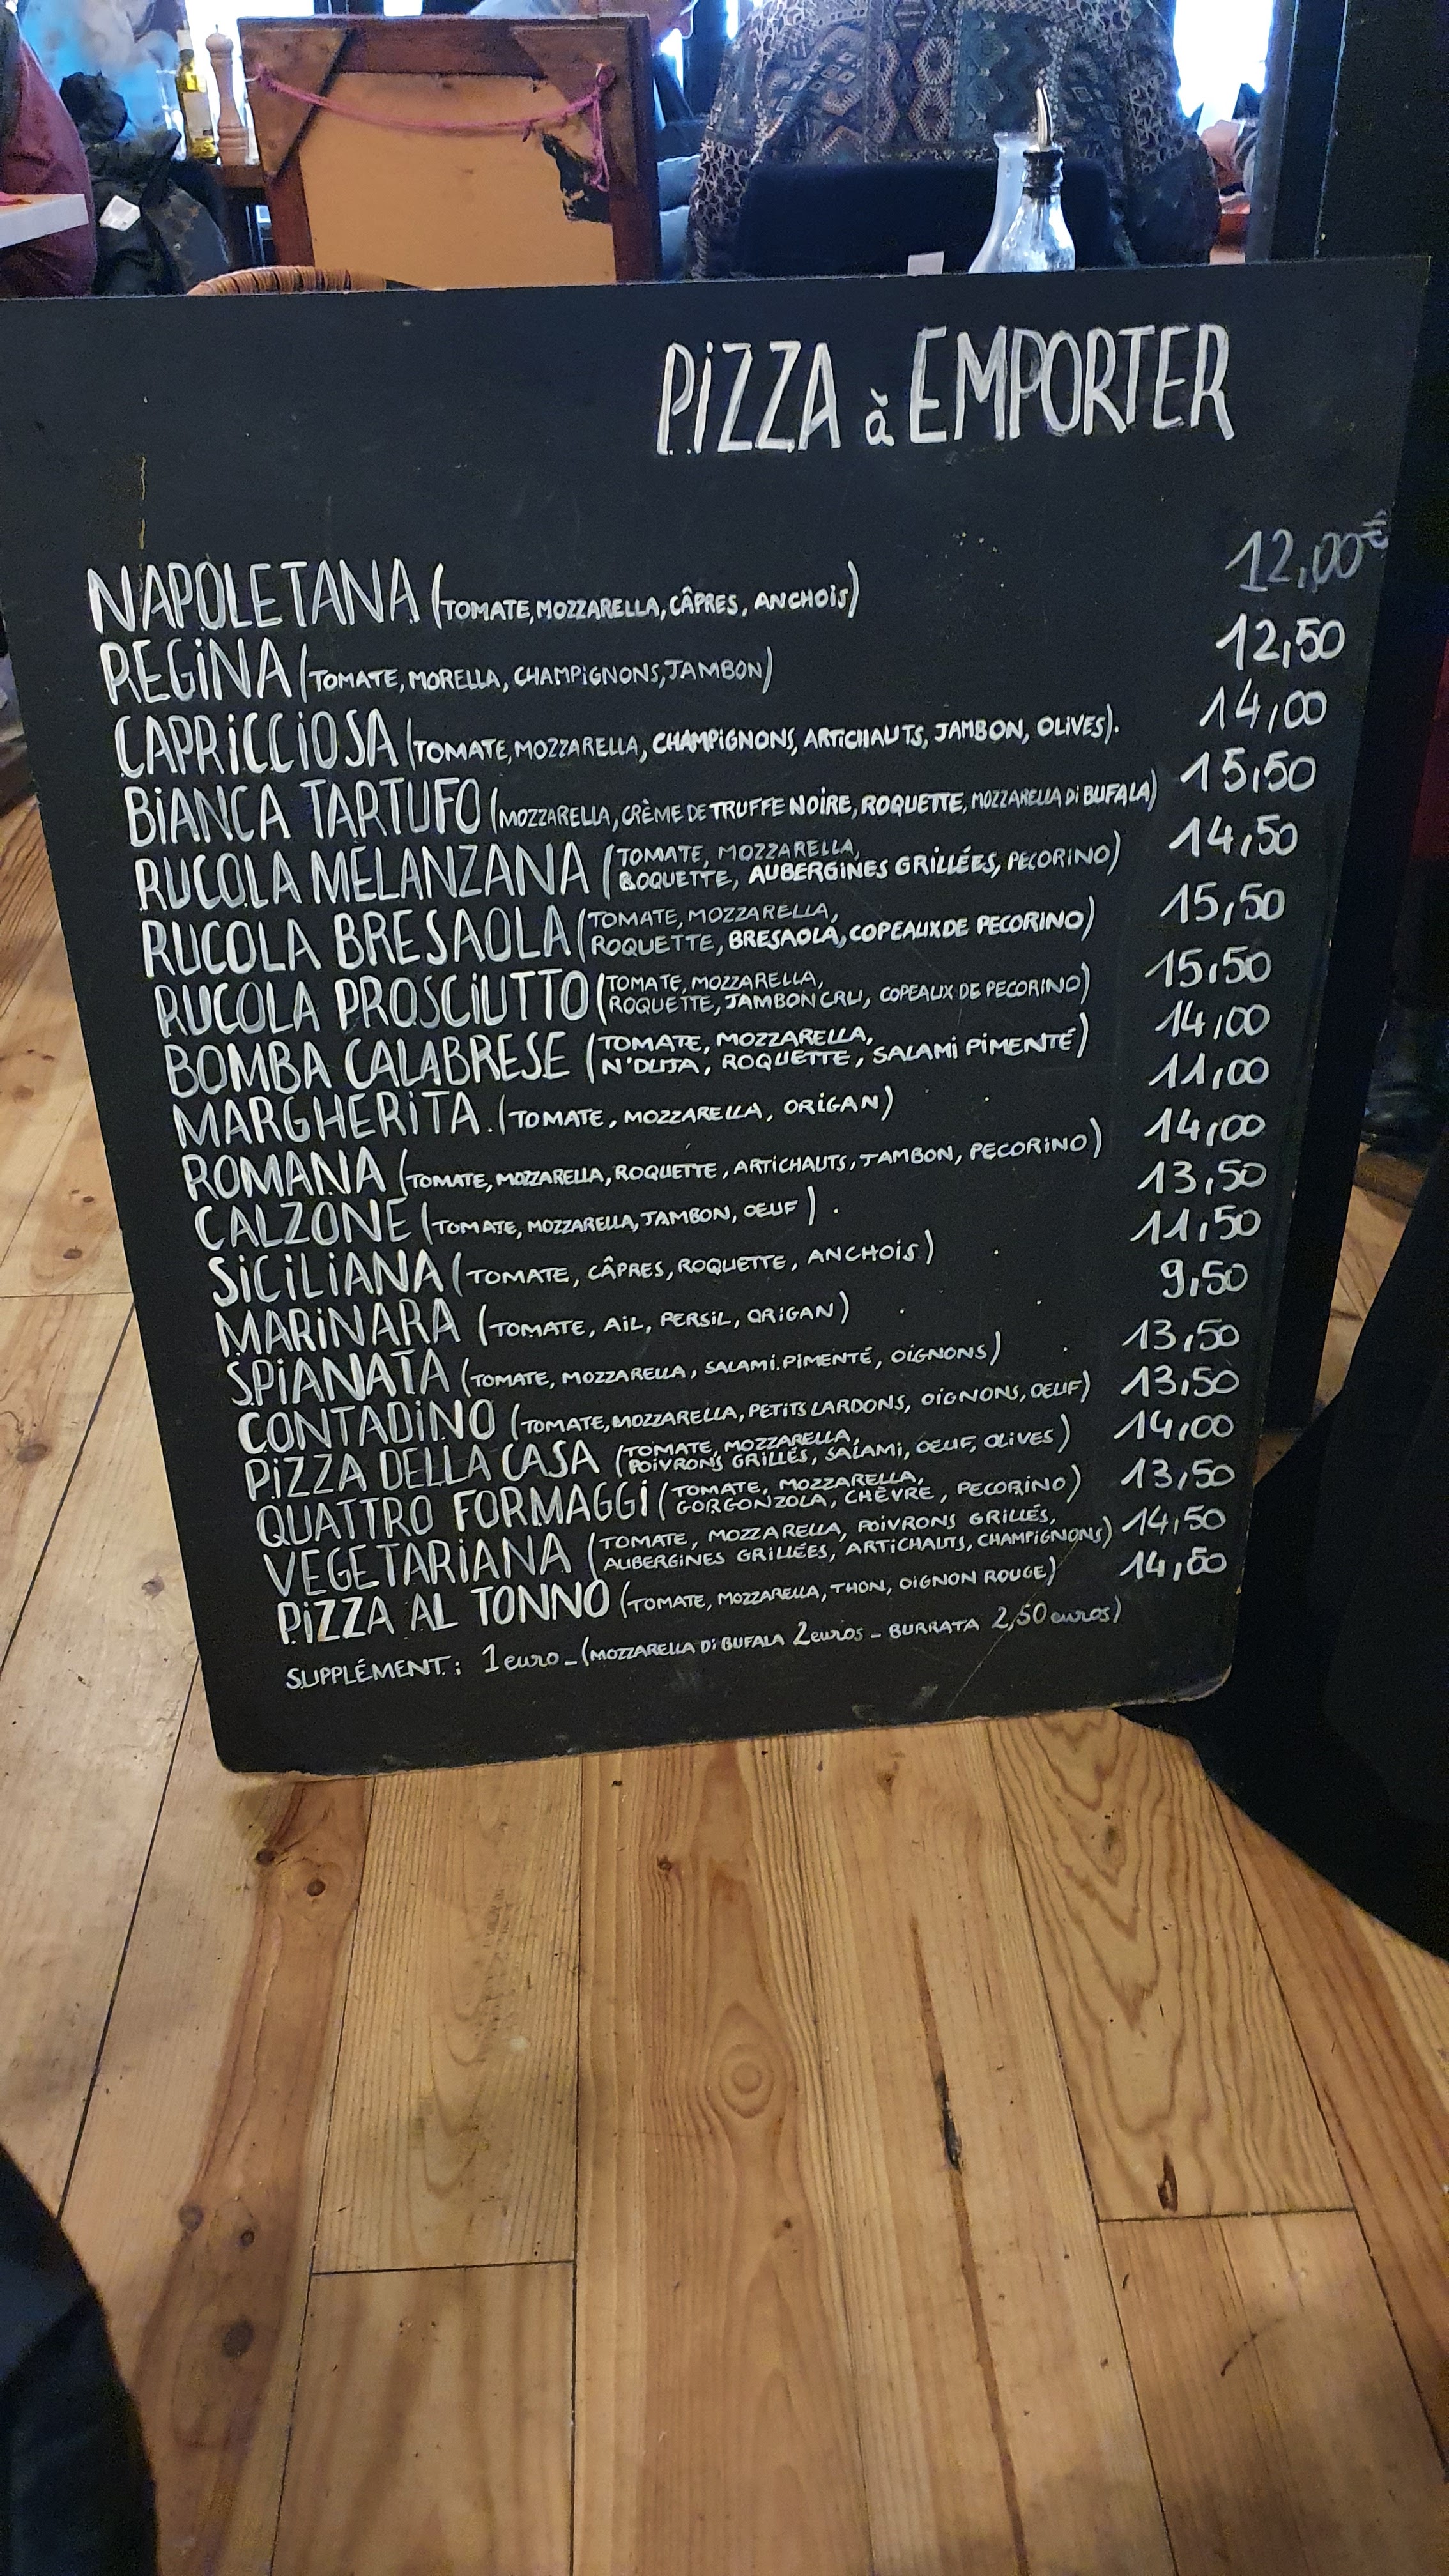 PiZZA à EMPORTER
NAPOLETANA (TOMATE, MOZZARELLA, CÂPRES, ANCHOiS) 12,00€
REGiNA (TOMATE, MORELLA, CHAMPiGNONS, JAMBON) 12,50
CAPRiCCiOSA (TOMATE, MOZZARELLA, CHAMPiGNONS, ARTiCHAUTS, JAMBON, OLIVES). 14,00
BiANCA TARTUFO (MOZZARELLA, CRÈME DE TRUFFE NOIRE, ROQUETTE, MOZZARELLA Di BUFALA) 15,50
RUCOLA MELANZANA (TOMATE, MOZZARELLA,
ROQUETTE, AUBERGINES GRILLÉES, PECORiNO) 14,50
RUCOLA BRESAOLA (TOMATE, MOZZARELLA,
ROQUETTE, BRESAOLA, COPEAUX DE PECORINO) 15,50
RUCOLA PROSCiUTTO (TOMATE, MOZZARELLA,
ROQUETTE, JAMBON CRU, COPEAUX DE PECORiNO) 15,50
BOMBA CALABRESE (TOMATE, MOZZARELLA,
N'DUJA, ROQUETTE, SALAMi PiMENTÉ) 14,00
MARGHERiTA (TOMATE, MOZZARELLA, ORiGAN) 11,00
ROMANA (TOMATE, MOZZARELLA, ROQUETTE, ARTiCHAUTS, JAMBON, PECORiNO) 14,00
CALZONE (TOMATE, MOZZARELLA, JAMBON, OEUF). 13,50
SiCiLiANA (TOMATE, CÂPRES, ROQUETTE, ANCHOiS) 11,50
MARiNARA (TOMATE, AiL, PERSiL, ORiGAN) 9,50
SPiANATA (TOMATE, MOZZARELLA, SALAMi PiMENTÉ, OiGNONS) 13,50
CONTADiNO (TOMATE, MOZZARELLA, PETiTS LARDONS, OiGNONS, OEUF) 13,50
PiZZA DELLA CASA (TOMATE, MOZZARELLA,
POiVRONS GRiLLÉS, SALAMi, OEUF, OLiVES) 14,00
QUATTRO FORMAGGi (TOMATE, MOZZARELLA,
GORGONZOLA, CHÈVRE, PECORiNO) 13,50
VEGETARiANA (TOMATE, MOZZARELLA, POiVRONS GRiLLÉS,
AUBERGiNES GRiLLÉES, ARTiCHAUTS, CHAMPiGNONS) 14,50
PiZZA AL TONNO (TOMATE, MOZZARELLA, THON, OiGNON ROUGE) 14,50
SUPPLÉMENT : 1 euro - (MOZZARELLA Di BUFALA 2 euros - BURRATA 2,50 euros)